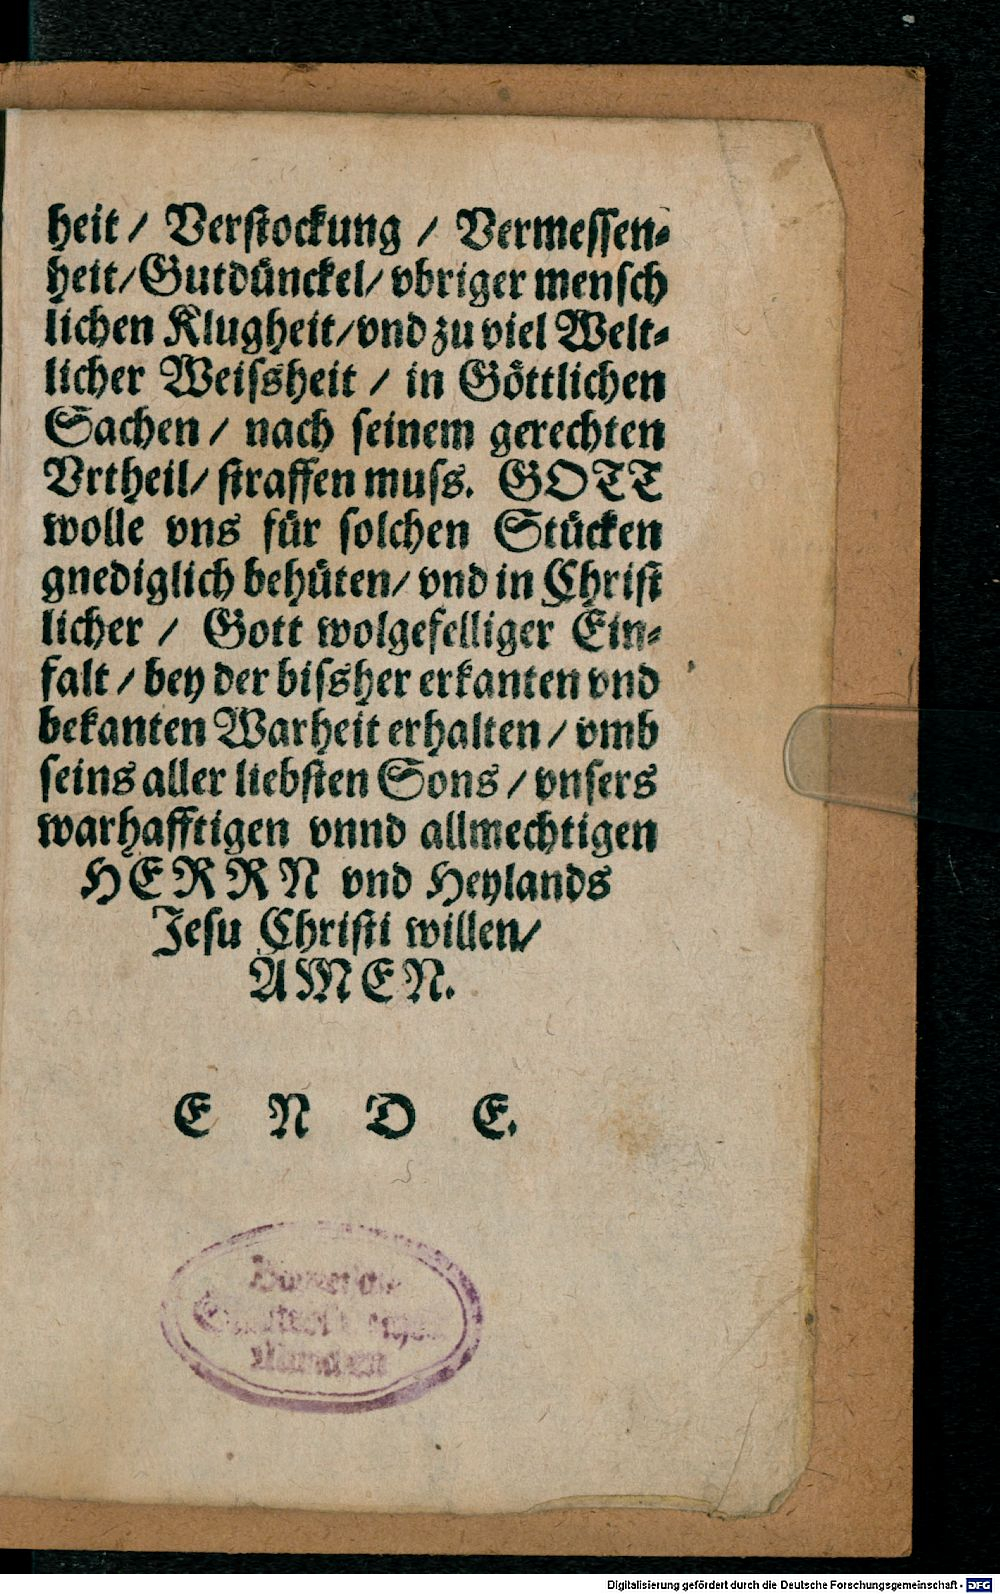 heit/ Verstockung / Vermessen-
heit/Gutdünckel/ vbriger mensch
lichen Klugheit/vnd zu viel Welt-
licher Weissheit / in Göttlichen
Sachen / nach seinem gerechten
Vrtheil/ straffen muss. GOTT
wolle vns für solchen Stücken
gnediglich behüten/ vnd in Christ
licher / Gott wolgefelliger Ein-
falt / bey der bissher erkanten vnd
bekanten Warheit erhalten / vmb
seins aller liebsten Sons / vnsers
warhafftigen vnnd allmechtigen
HERRN vnd Heylands
Jesu Christi willen/
AMEN.
E N D E.
München
Digitalisierung gefördert durch die Deutsche Forschungsgemeinschaft - DFG